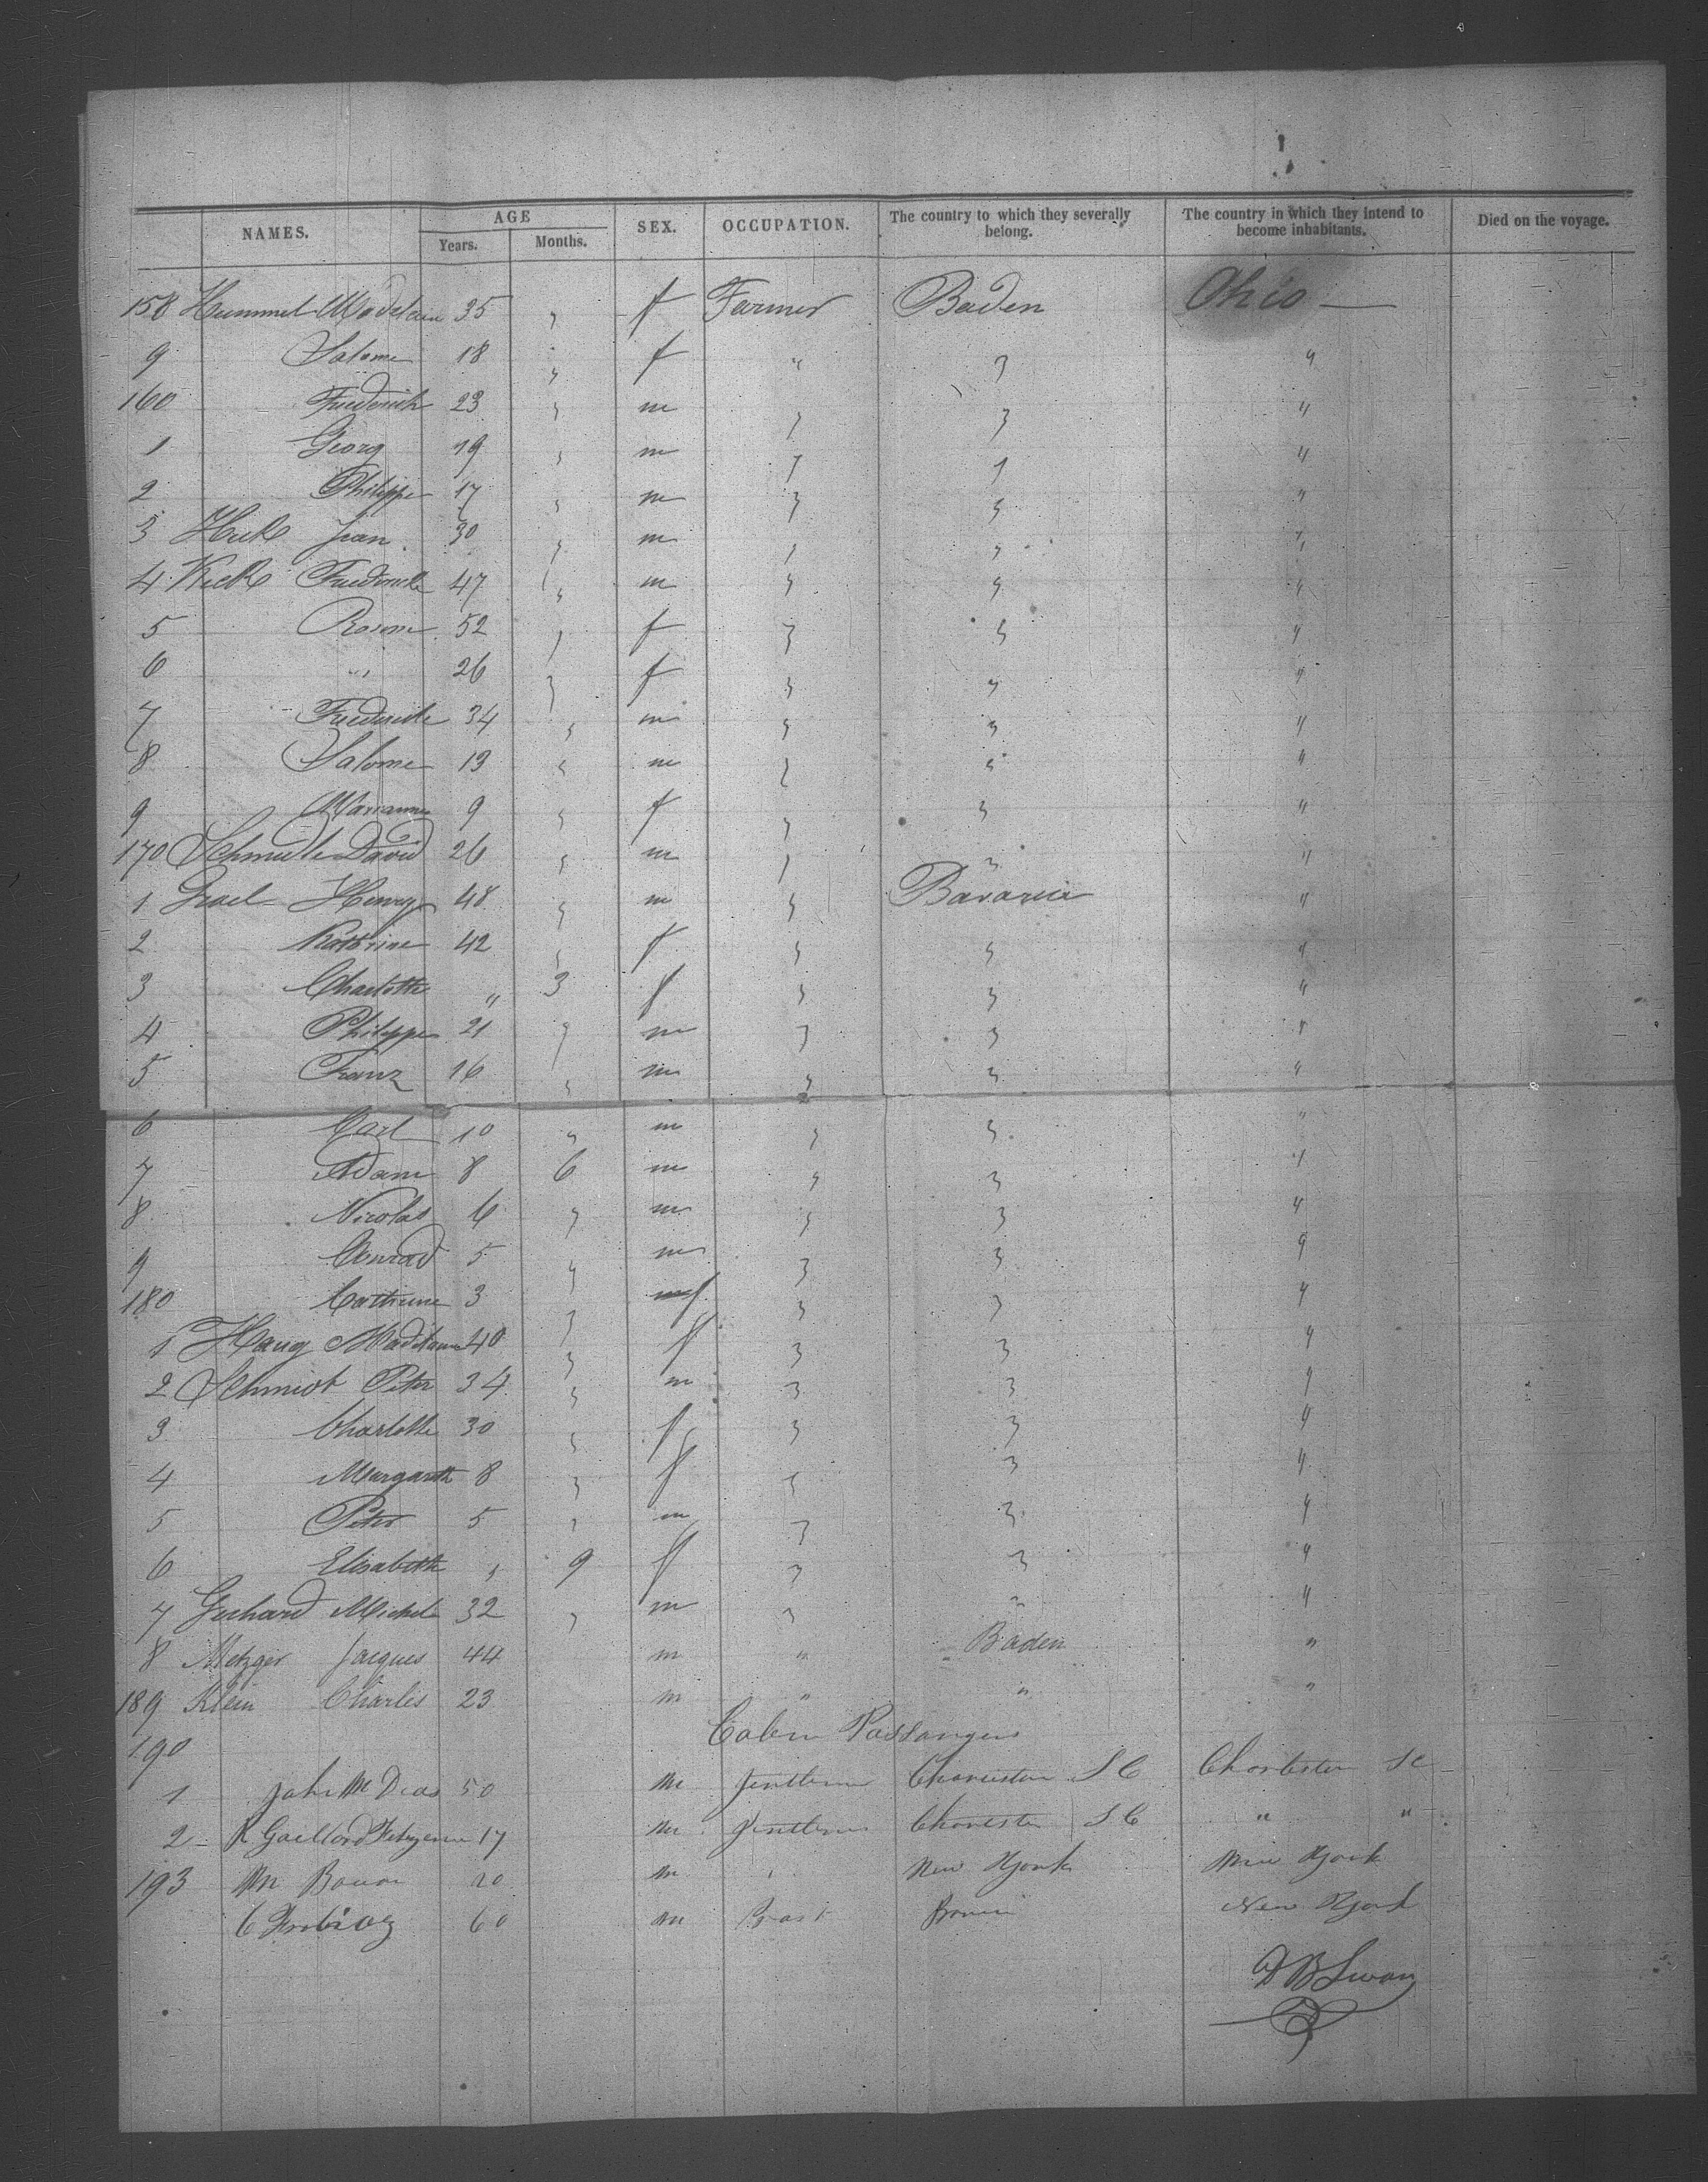 NAMES. AGE Years. Months. SEX. OCCUPATION. The country to which they severally belong. The country in which they intend to become inhabitants. Died on the voyage.
158 Hummel Madelain 35 " f Farmer Baden Ohio —
9 Salome 18 " f " " "
160 Frederick 23 " m " " "
1 Georg 19 " m " " "
2 Philippe 17 " m " " "
3 Huck Jean 30 " m " " "
4 Kick Frederick 47 " m " " "
5 Rosine 52 " f " " "
6 " 26 " f " " "
7 Frederick 34 " m " " "
8 Salome 13 " m " " "
9 Marianne 9 " f " " "
170 David 26 " m " " "
1 Henry 48 " m " Bavaria "
2 Kathrine 42 " f " " "
3 Charlotte " 3 f " " "
4 Philippe 21 " m " " "
5 Franz 16 " m " " "
6 Carl 10 " m " " "
7 Adam 8 6 m " " "
8 Nicolas 6 " m " " "
9 Conrad 5 " m " " "
180 Cathrine 3 " f " " "
1 Haug Madelaine 40 " f " " "
2 Schmidt Peter 34 " m " " "
3 Charlotte 30 " f " " "
4 Margareth 8 " f " " "
5 Peter 5 " m " " "
6 Elisabeth " 9 f " " "
7 Michel 32 " m " " "
8 Metzger Jacques 44 m " Baden "
189 Klein Charles 23 m " " "
190 Cabin Passangers
1 John M Deas 50 M Gentleman Charleston S C Charleston SC
2 R Gaillard 17 M Gentleman Charleston S C " "
193 20 M " New York New York
C 60 M New York
D B Swan